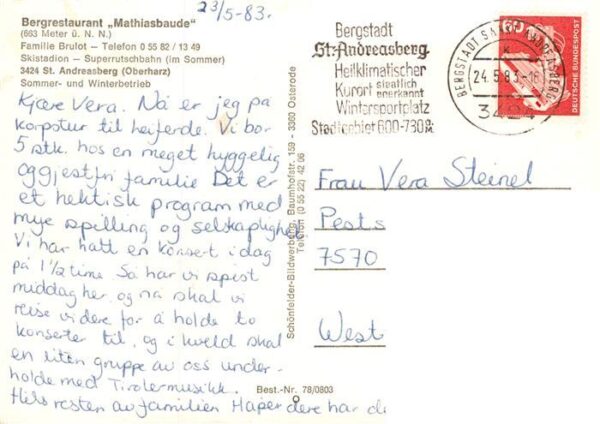 23/5-83.
Bergrestaurant „Mathiasbaude"
(663 Meter ü. N. N.)
Familie Brulot – Telefon 0 55 82 / 13 49
Skistadion – Superrutschbahn (im Sommer)
3424 St. Andreasberg (Oberharz)
Sommer- und Winterbetrieb
Kjære Vera. Nå er jeg på
korpstur til
Vi bor
5 stk. hos en meget hyggelig
og gjestfri familie Det er
et hektisk program med
mye spilling og selskaplighet
Vi har hatt en konsert i dag
på 1 1/2 time Så har vi spist
middag her og nå skal vi
reise videre for å holde to
konserter til, og i kveld skal
en liten gruppe av oss under-
holde med Tirolermusikk.
Hils resten av familien Håper dere har d
Schönfelder-Bildwerbung, Baumhofstr. 159 - 3360 Osterode
Telefon (0 55 22) 42 06
Best.-Nr. 78/0803
Bergstadt
St. Andreasberg
Heilklimatischer
Kurort staatlich anerkannt
Wintersportplatz
Stadtgebiet 600-730
BERGSTADT SANKT ANDREASBERG
24.5.83-16
3424
60
DEUTSCHE BUNDESPOST
Frau Vera Steinel
Pests
7570
West